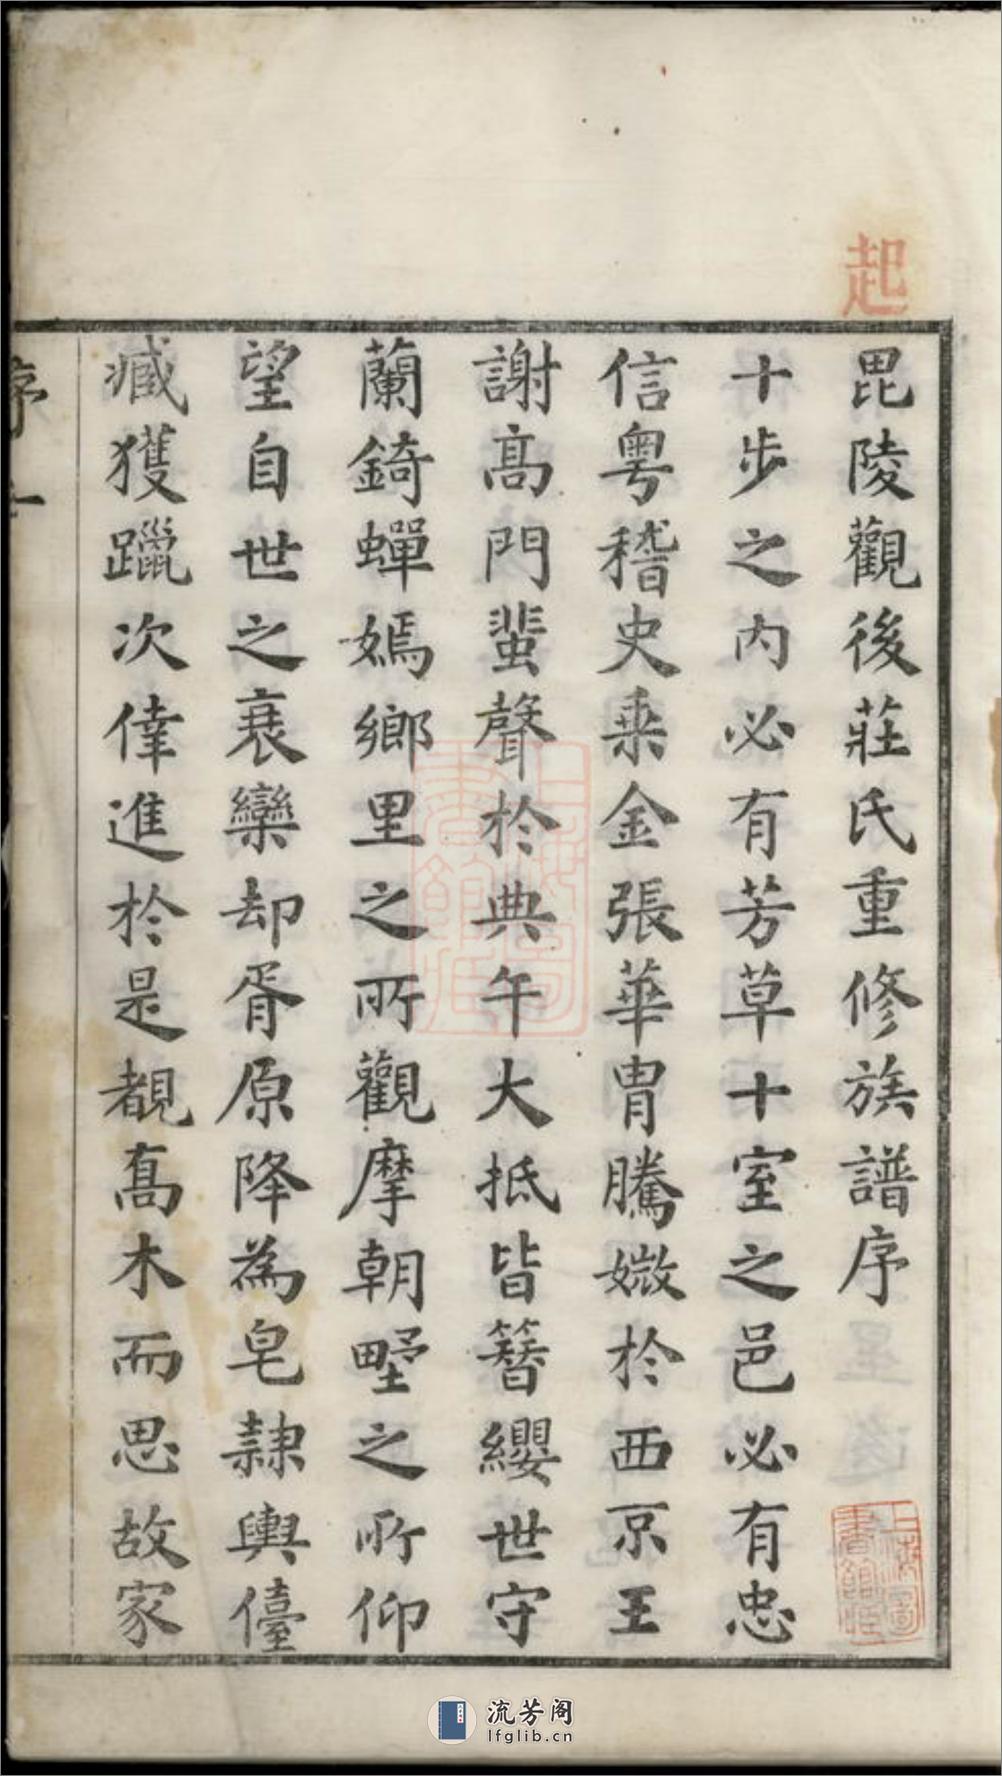 起
毘陵觀後莊氏重修族譜序
十步之內必有芳草十室之邑必有忠
信粵稽史乘金張華胄騰媺於西京王
謝高門蜚聲於典午大抵皆簪纓世守
蘭錡蟬嫣鄉里之所觀摩朝野之所仰
望自世之衰欒却胥原降為皂隸輿儓
臧獲躐次倖進於是覩高木而思故家
序
一
上海圖書館藏
上海圖書館藏
流芳阁
lfglib.cn